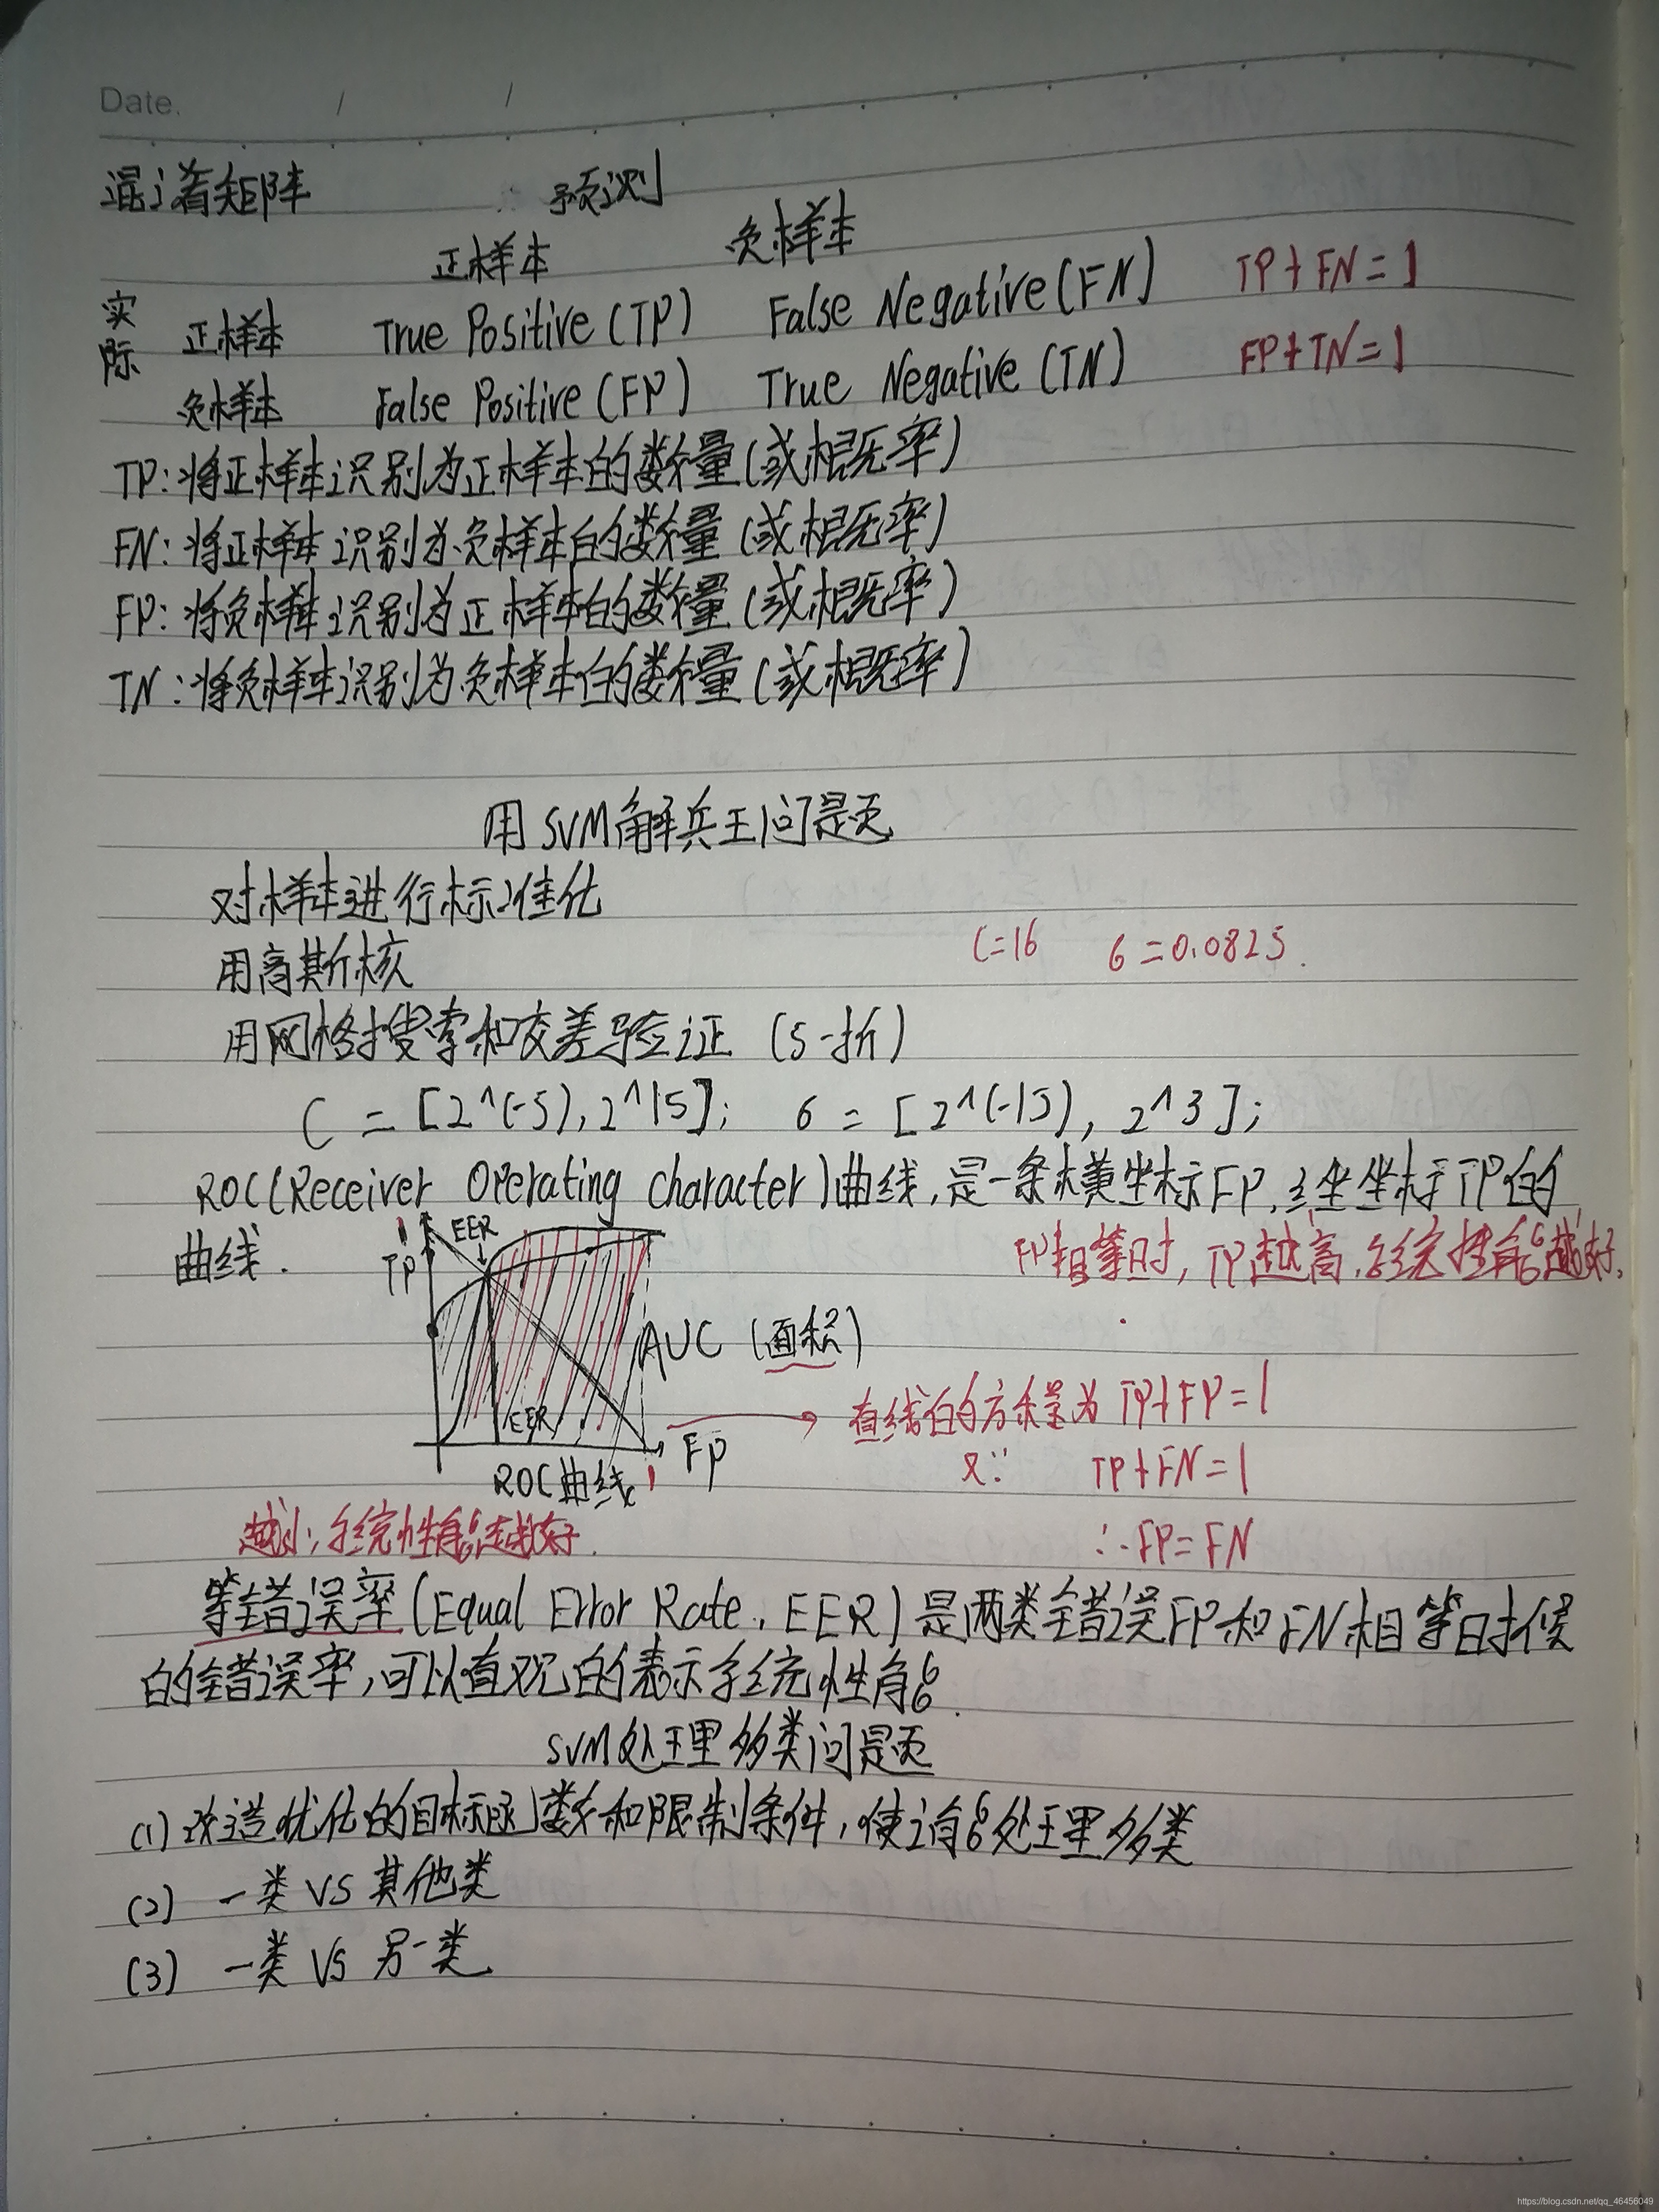 Date. / /
混淆矩阵 预测
正样本 负样本
实际 正样本 True Positive (TP) False Negative (FN) TP+FN=1
负样本 False Positive (FP) True Negative (TN) FP+TN=1
TP:将正样本识别为正样本的数量(或概率)
FN:将正样本识别为负样本的数量(或概率)
FP:将负样本识别为正样本的数量(或概率)
TN:将负样本识别为负样本的数量(或概率)
用SVM解兵王问题
对样本进行标准化
用高斯核 C=16 б=0.0825.
用网格搜索和交差验证 (5-折)
C = [2^(-5), 2^15]; б = [2^(-15), 2^3];
ROC(Receiver Operating Character)曲线,是一条横坐标FP,纵坐标TP的
曲线.
FP相等时,TP越高,系统性能越好.
1 EER
TP
AUC (面积)
EER
FP
1
ROC曲线
直线的方程为 TP+FP=1
又∵ TP+FN=1
∴FP=FN
越小,系统性能越好.
等错误率(Equal Error Rate, EER)是两类错误FP和FN相等时候
的错误率,可以直观的表示系统性能.
SVM处理多类问题
(1)改造优化的目标函数和限制条件,使之能处理多类
(2) 一类 VS 其他类
(3) 一类 VS 另一类
https://blog.csdn.net/qq_46456049